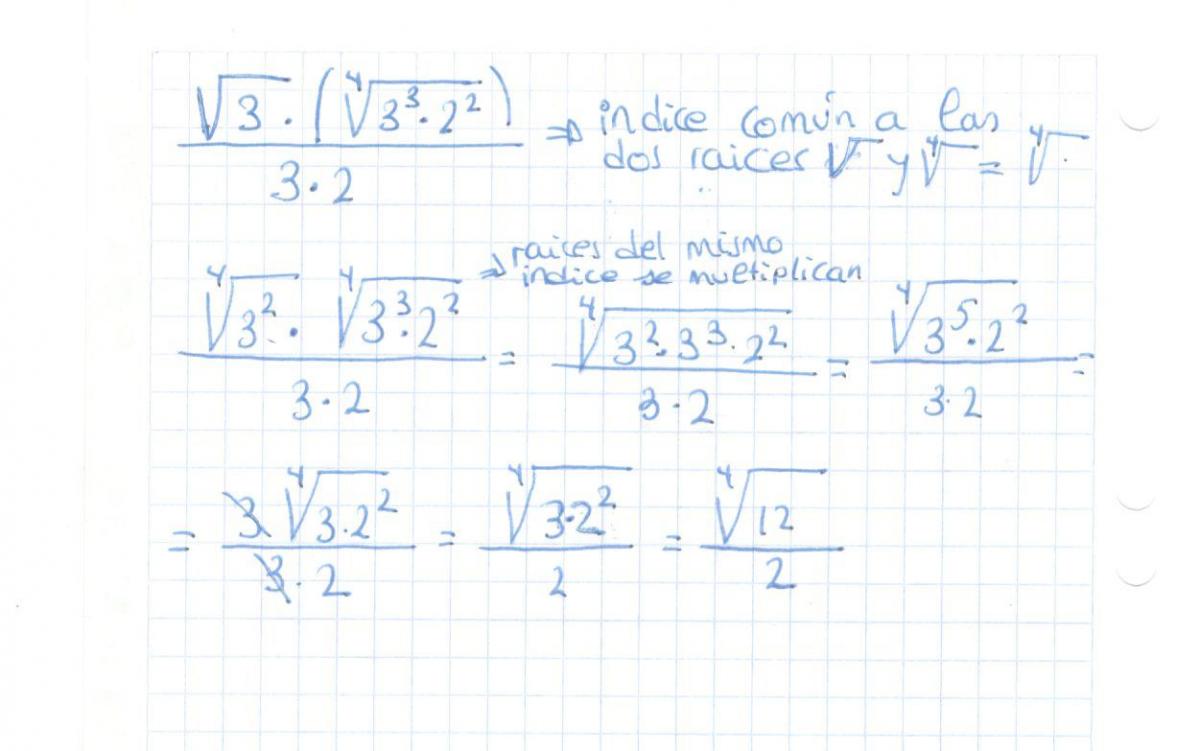 √3 · (⁴√3³·2²) / 3·2 ⇒ indice común a las
dos raices √ y ⁴√ = ⁴√·
⇒ raices del mismo
indice se multiplican
⁴√3² · ⁴√3³·2² / 3·2 = ⁴√3²·3³·2² / 3·2 = ⁴√3⁵·2² / 3·2 =
= 3 ⁴√3·2² / 3·2 = ⁴√3·2² / 2 = ⁴√12 / 2